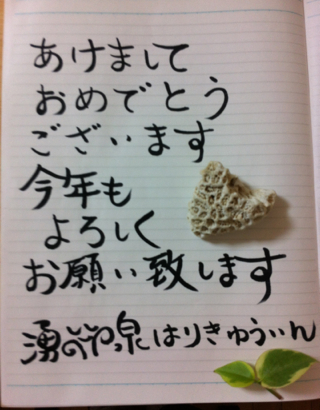 あけまして
おめでとう
ございます
今年も
よろしく
お願い致します
湧の泉はりきゅういん